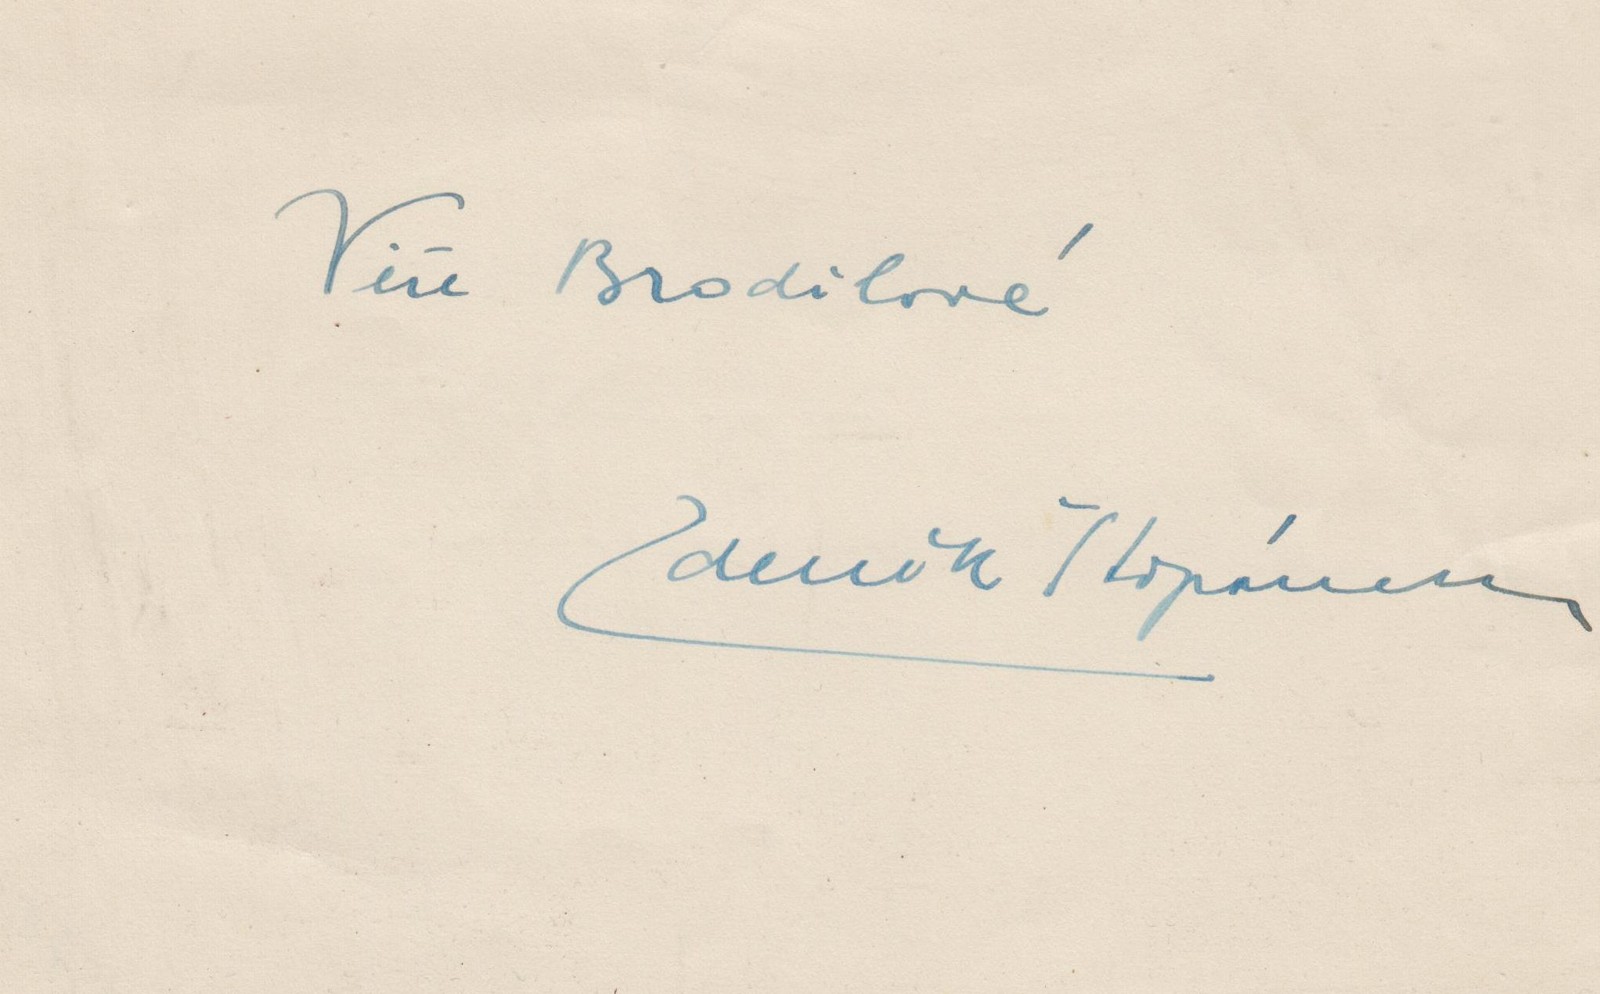 Věře Brodilové
Zdeněk Štěpánek